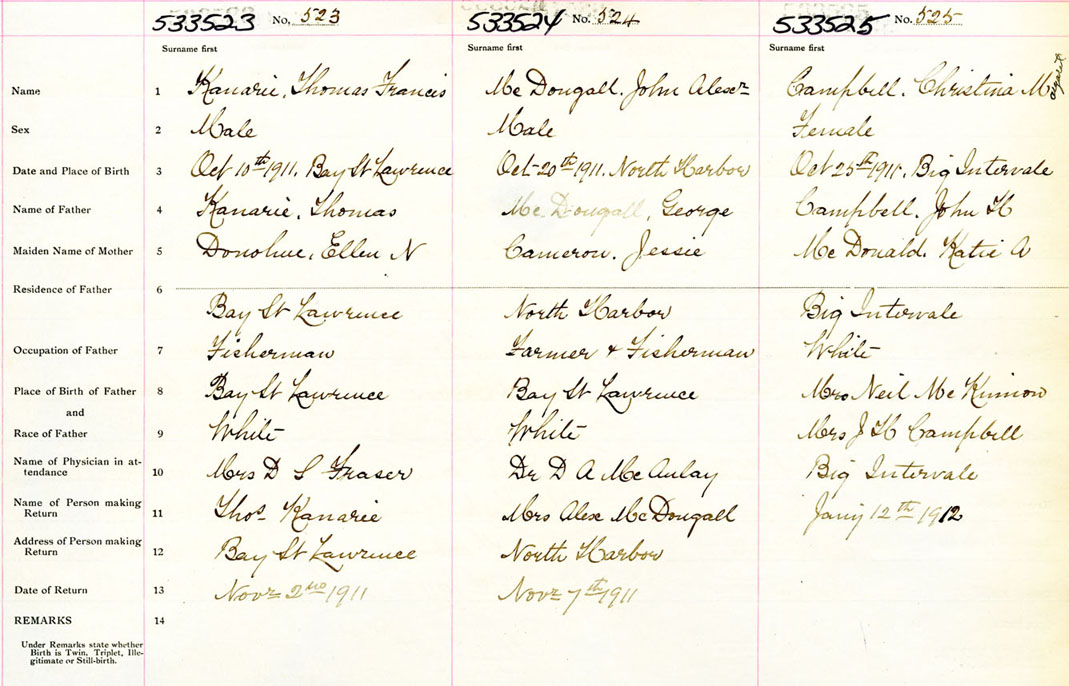 533523 No. 523 533524 No. 524 533525 No. 525
Surname first Surname first Surname first
Name 1 Kanarie, Thomas Francis Mc Dougall. John Alexr Campbell. Christina Margaret
Sex 2 Male Male Female
Date and Place of Birth 3 Oct 10th 1911. Bay St Lawrence Oct-20th 1911. North Harbor Oct 25th 1911. Big Intervale
Name of Father 4 Kanarie, Thomas Mc Dougall, George Campbell. John H
Maiden Name of Mother 5 Donohue, Ellen N Cameron. Jessie Mc Donald. Katie A
Residence of Father 6
Bay St Lawrence North Harbor Big Intervale
Occupation of Father 7 Fisherman Farmer & Fisherman White
Place of Birth of Father 8 Bay St Lawrence Bay St Lawrence Mrs Neil Mc Kinnon
and
Race of Father 9 White White Mrs J H Campbell
Name of Physician in at-
tendance 10 Mrs D S Fraser Dr D A McAulay Big Intervale
Name of Person making
Return 11 Thos Kanarie Mrs Alex McDougall Jany 12th 1912
Address of Person making
Return 12 Bay St Lawrence North Harbor
Date of Return 13 Novr 2nd 1911 Novr 7th 1911
REMARKS 14
Under Remarks state whether
Birth is Twin, Triplet, Ille-
gitimate or Still-birth.